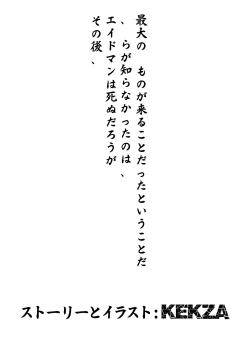 最大の ものが来ることだったということだ
、 らが知らなかったのは 、
エイドマンは死ぬだろうが
その後 、
ストーリーとイラスト:KEKZA